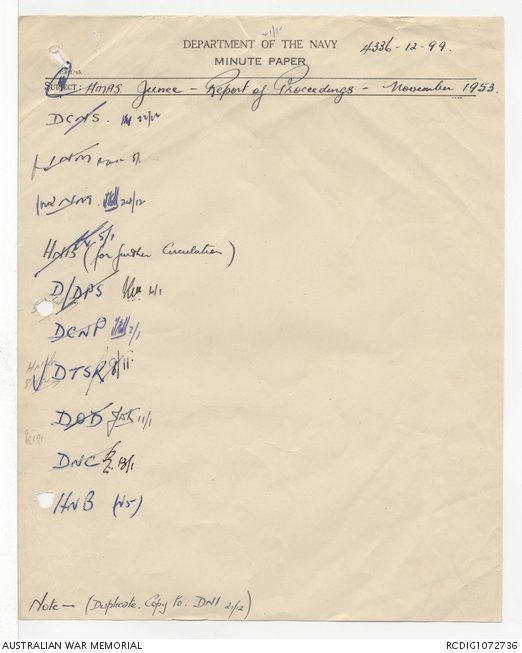 DEPARTMENT OF THE NAVY
4336-12-99.
MINUTE PAPER
SUBJECT: HMAS Junee - Report of Proceedings - November 1953.
DCNS. 22/12
2NM 24/12
HNB (for further Circulation) 5/1
D/DPS 6/1
DCNP 7/1
DTSR 8/11
DOD 11/1
DNC 13/1
HNB (N5)
Note - (Duplicate Copy to DNI 21/12)
AUSTRALIAN WAR MEMORIAL
RCDIG1072736